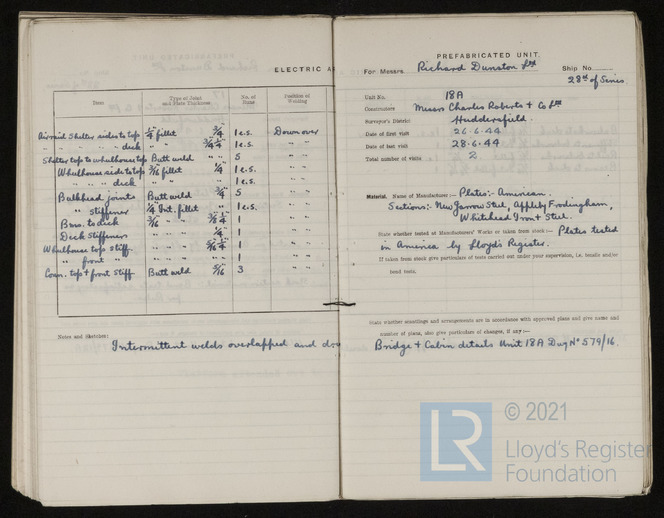 ELECTRIC A
Item
Type of Joint and Plate Thickness
No. of Runs
Position of Welding
Airraid Shelter sides to top 1/4 fillet 3/4 1 e.s. Down over
" " " " deck " " 3/4 1/4 1 e.s. " "
Shelter top to wheelhouse top Butt weld " " 5 " "
Wheelhouse side to top 3/16 fillet 1/4 1 e.s. " "
" " " deck " " " " 1 e.s. " "
Bulkhead joints Butt weld 3/4 5 " "
" Stiffener 1/4 Int. fillet " " 1 e.s. " "
to deck 3/16 " " 1 " "
Deck Stiffeners " " 1/4 1 " "
Wheelhouse top Stiff. " " 5/16 1/4 1 " "
" front " " " " " 1 " "
Conn. top & front Stiff Butt weld 5/16 3 " "
Notes and Sketches:
Intermittent welds overlapped and dry
PREFABRICATED UNIT.
For Messrs. Richard Dunston Ltd Ship No.
28th of Series
Unit No. 18A
Constructors Messrs Charles Roberts & Co Ltd
Surveyor's District Huddersfield
Date of first visit 26.6.44
Date of last visit 28.6.44
Total number of visits 2
Material. Name of Manufacturer:— Plates:- American.
Sections:- New Jarrow Steel, Appleby Frodingham,
Whitehead Iron & Steel.
State whether tested at Manufacturers' Works or taken from stock:— Plates tested
in America by Lloyd's Register.
If taken from stock give particulars of tests carried out under your supervision, i.e. tensile and/or
bend tests.
State whether scantlings and arrangements are in accordance with approved plans and give name and
number of plans, also give particulars of changes, if any:—
Bridge & Cabin details Unit 18A Dwg No 579/16.
LR
© 2021
Lloyd's Register
Foundation